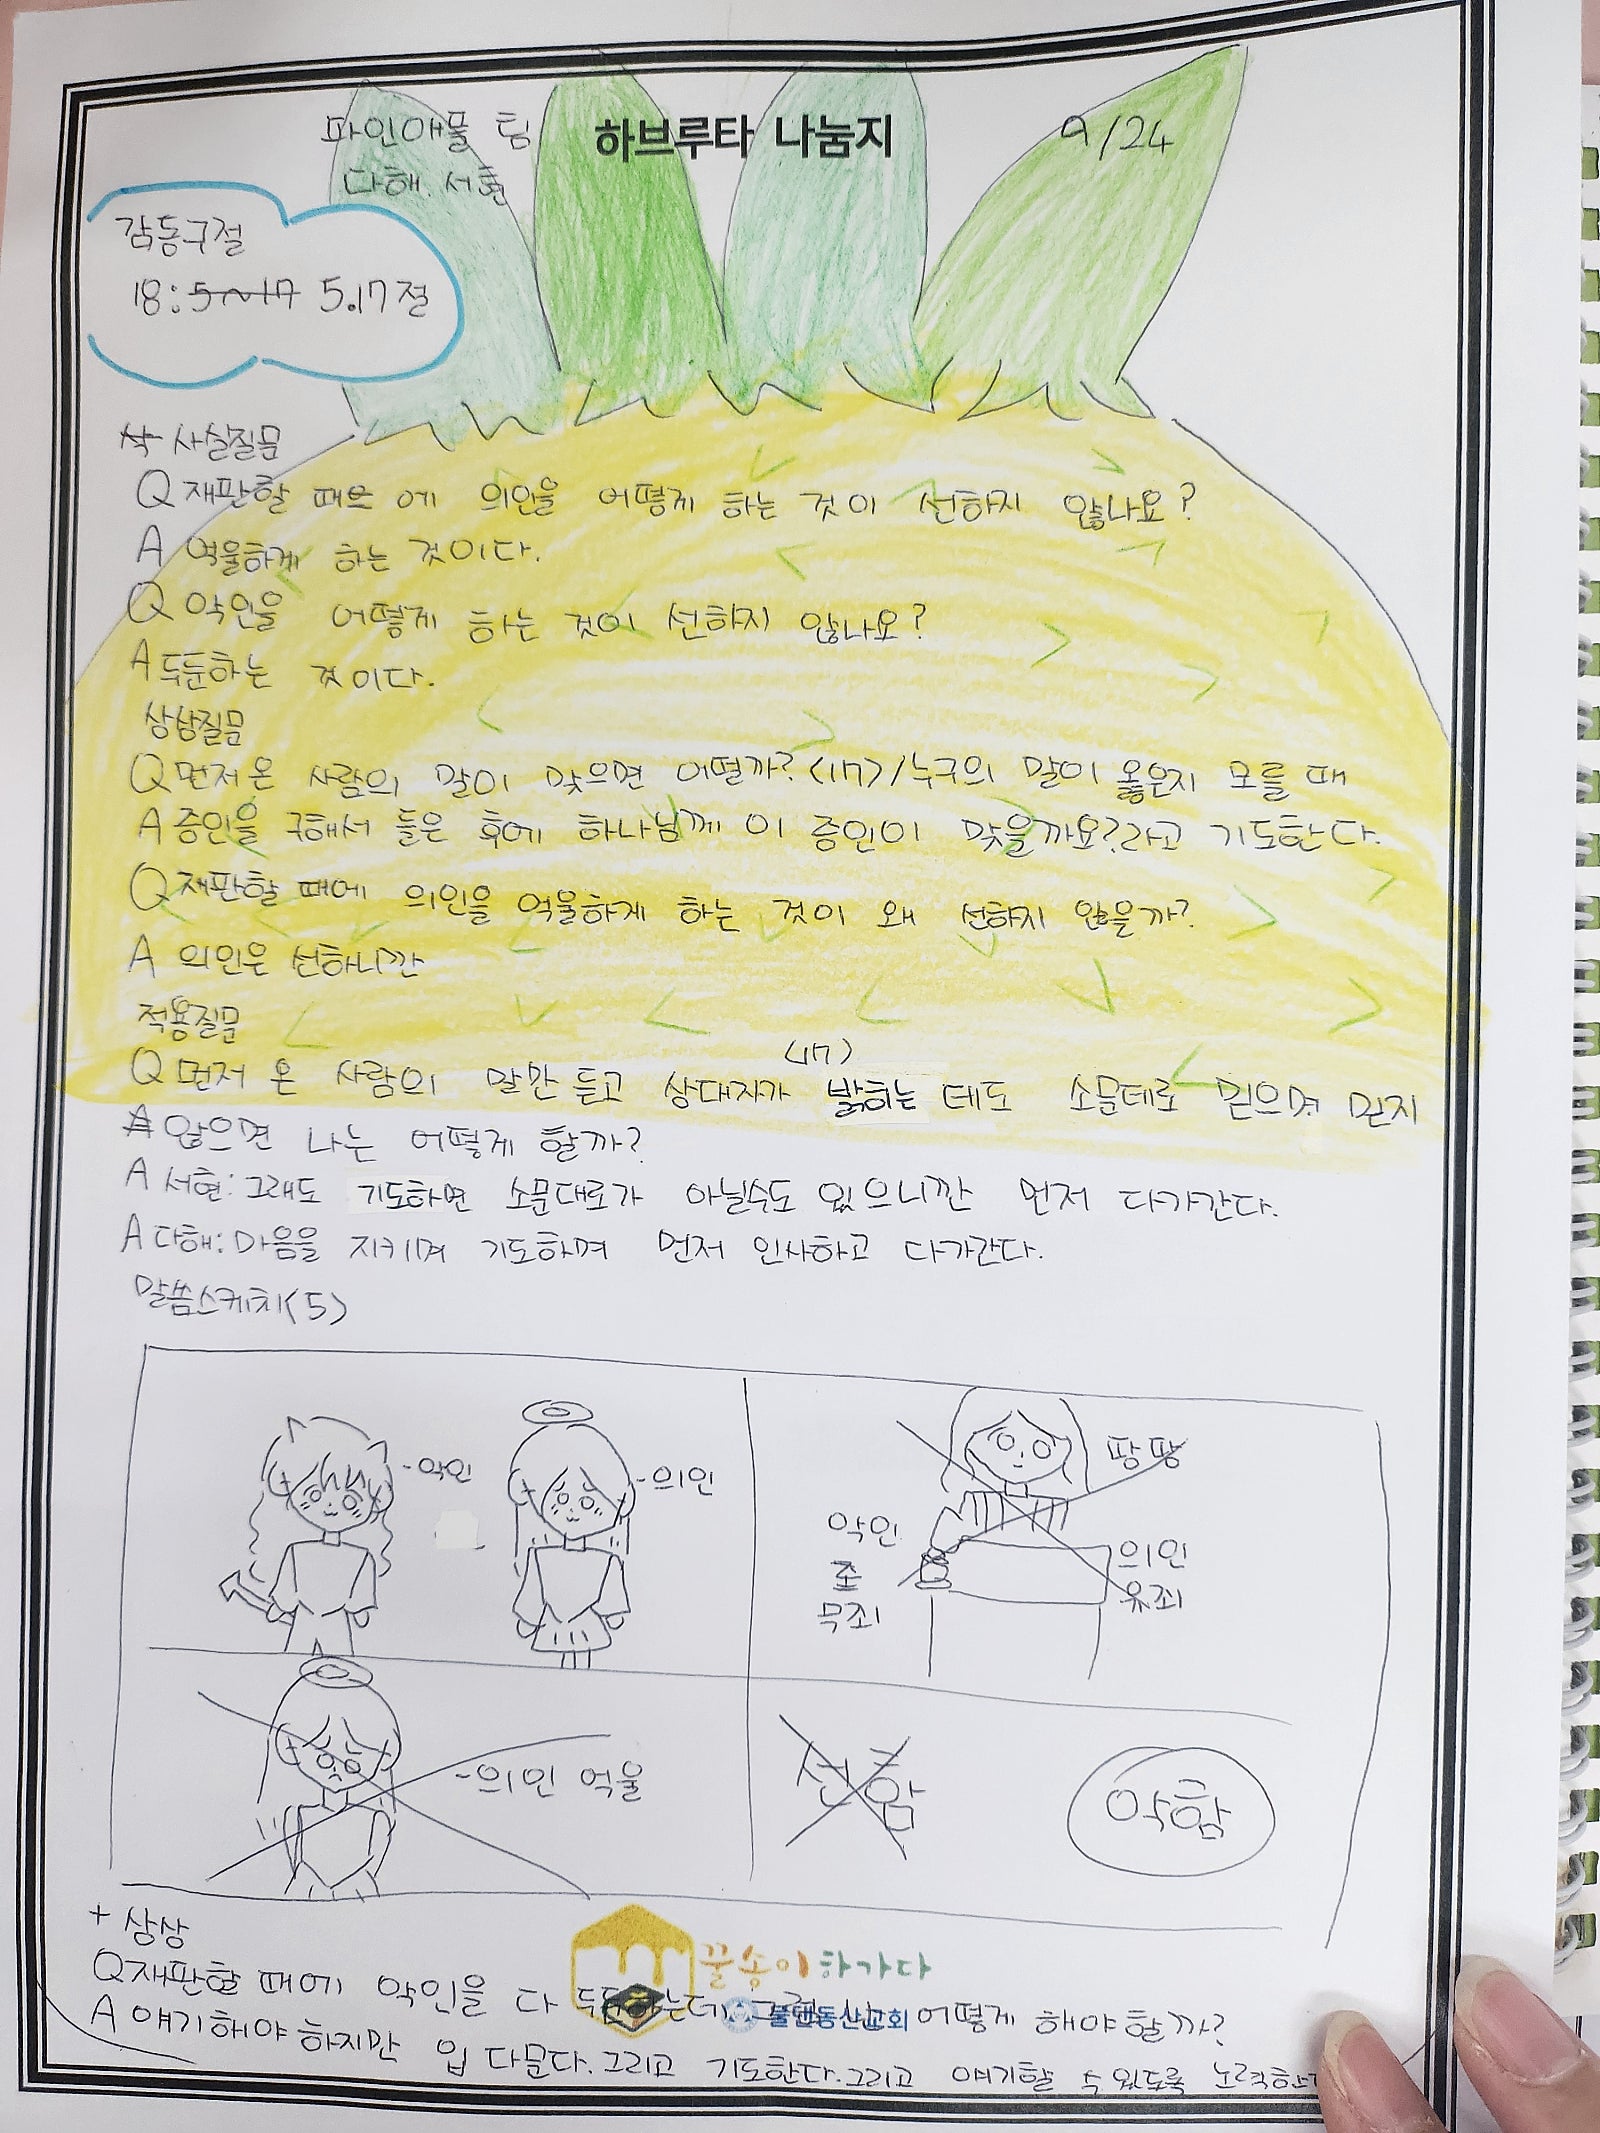 파인애플 팀 하브루타 나눔지 9/24
다해. 서현
감동구절
18: 5~17 5.17절
사실질문
Q 재판할 때 에 의인을 어떻게 하는 것이 선하지 않나요?
A 억울하게 하는 것이다.
Q 악인을 어떻게 하는 것이 선하지 않나요?
A 두둔하는 것이다.
상상질문
Q 먼저 온 사람의 말이 맞으면 어떨까? (17) / 누구의 말이 옳은지 모를 때
A 증인을 구해서 들은 후에 하나님께 이 증인이 맞을까요?라고 기도한다.
Q 재판할 때에 의인을 억울하게 하는 것이 왜 선하지 않을까?
A 의인은 선하니깐
적용질문
(17)
Q 먼저 온 사람의 말만 듣고 상대자가 밝히는 데도 소문데로 믿으며 믿지
않으면 나는 어떻게 할까?
A 서현: 그래도 기도하면 소문대로가 아닐수도 있으니깐 먼저 다가간다.
A 다해: 마음을 지키며 기도하며 먼저 인사하고 다가간다.
말씀스케치(5)
-악인 -의인
땅땅
악인 의인
무죄 유죄
-의인 억울
선함 악함
+ 상상
꿀송이하가다
Q 재판할 때에 악인을 다 두둔하는데 어떻게 해야 할까?
동산교회
A 얘기해야 하지만 입 다문다. 그리고 기도한다. 그리고 얘기할 수 있도록